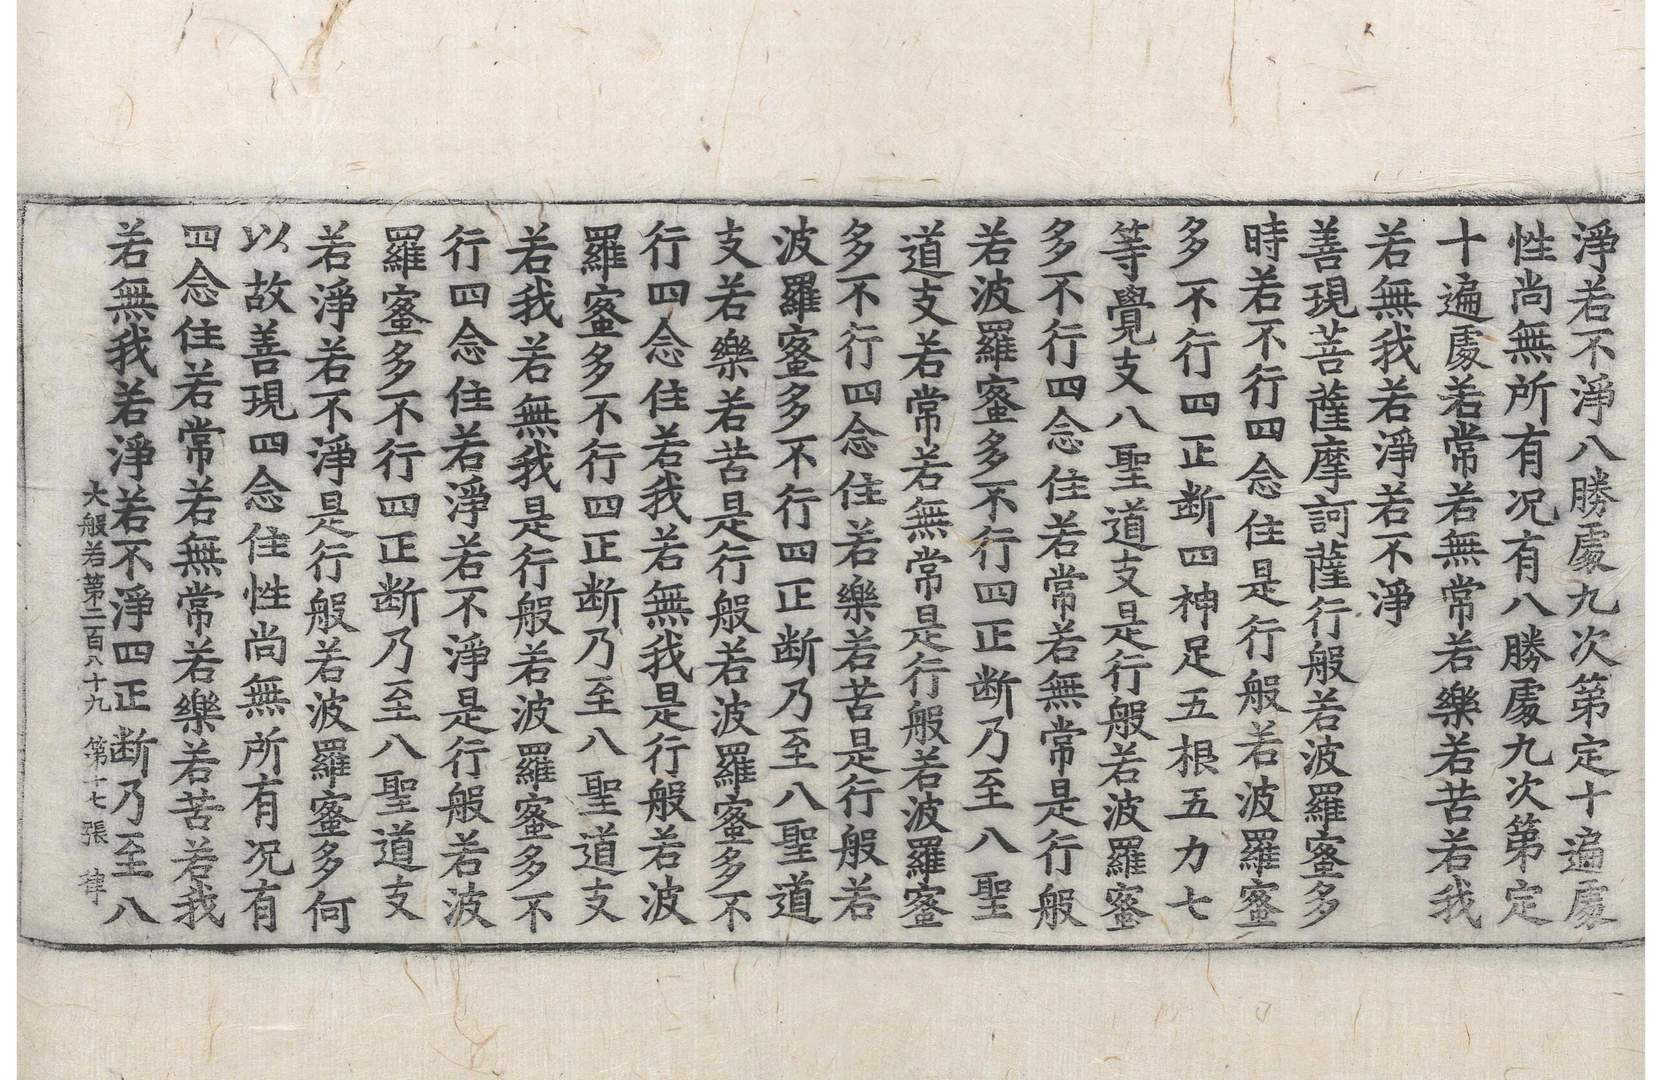 淨若不淨八勝處九次第定十遍處
性尚無所有况有八勝處九次第定
十遍處若常若無常若樂若苦若我
若無我若淨若不淨
善現菩薩摩訶薩行般若波羅蜜多
時若不行四念住是行般若波羅蜜
多不行四正断四神足五根五力七
等覺支八聖道支是行般若波羅蜜
多不行四念住若常若無常是行般
若波羅蜜多不行四正断乃至八聖
道支若常若無常是行般若波羅蜜
多不行四念住若樂若苦是行般若
波羅蜜多不行四正断乃至八聖道
支若樂若苦是行般若波羅蜜多不
行四念住若我若無我是行般若波
羅蜜多不行四正断乃至八聖道支
若我若無我是行般若波羅蜜多不
行四念住若淨若不淨是行般若波
羅蜜多不行四正断乃至八聖道支
若淨若不淨是行般若波羅蜜多何
以故善現四念住性尚無所有况有
四念住若常若無常若樂若苦若我
若無我若淨若不淨四正断乃至八
大般若第二百八十九 第十七張